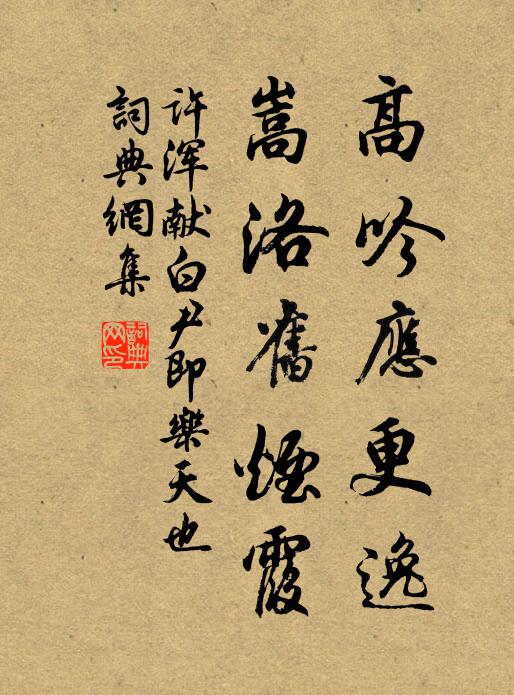 高吟應更逸
嵩洛舊煙霞
許渾獻白尹即樂天也
詞典網集
詞典網印